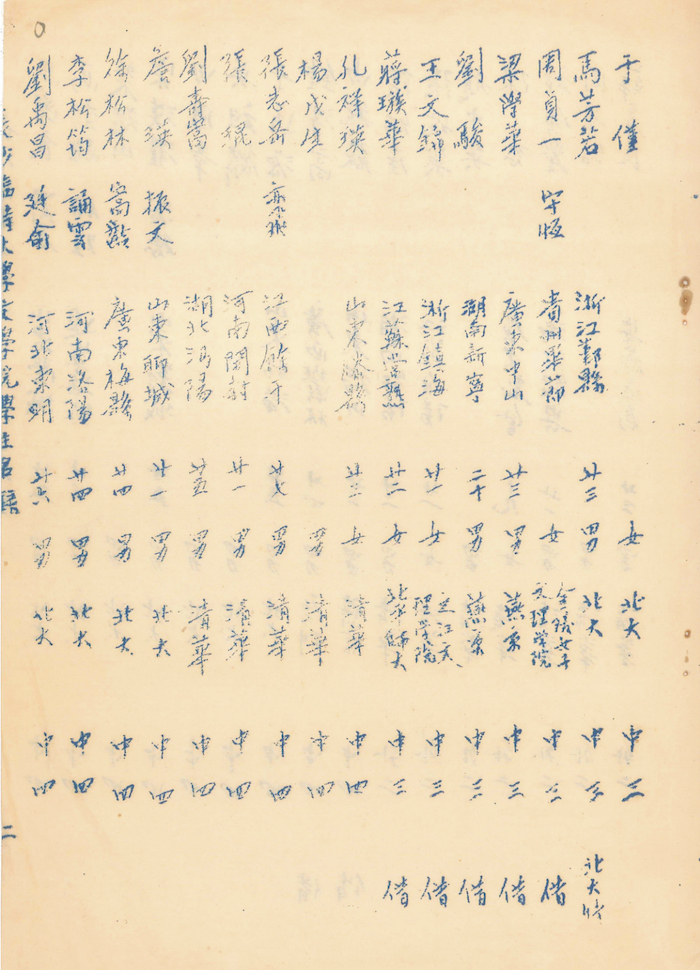 于僅 女 北大 中三
馬芳若 浙江鄞縣 廿三 男 北大 中三 北大借
周貞一 畢恆 貴州畢節 女 金陵女子文理學院 中三 借
梁學華 廣東中山 廿三 男 燕京 中三 借
劉駿 湖南新寧 二十 男 燕京 中三 借
王文錦 浙江鎮海 廿一 女 之江文理學院 中三 借
蔣璇華 江蘇常熟 廿二 女 北平師大 中三 借
孔祥瑛 山東滕縣 廿三 女 清華 中四
楊戊生 男 清華 中四
張志岳 江西餘干 廿七 男 清華 中四
張琨 河南開封 廿一 男 清華 中四
劉壽嵩 湖北沔陽 廿五 男 清華 中四
詹瑛 振文 山東聊城 廿一 男 北大 中四
徐松林 嵩齡 廣東梅縣 廿四 男 北大 中四
李松筠 誦雲 河南洛陽 廿四 男 北大 中四
劉禹昌 廷俞 河北東明 廿六 男 北大 中四
長沙臨時大學文學院學生名錄 二